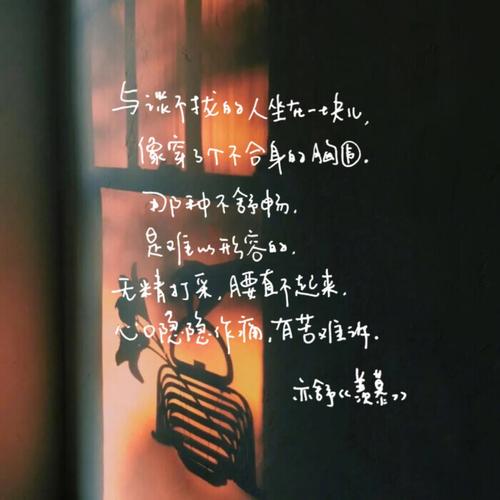 与谈不拢的人坐在一块儿,
像穿了个不合身的胸围.
那种不舒畅.
是难以形容的.
无精打采,腰直不起来.
心口隐隐作痛,有苦难诉.
亦舒《羡慕》